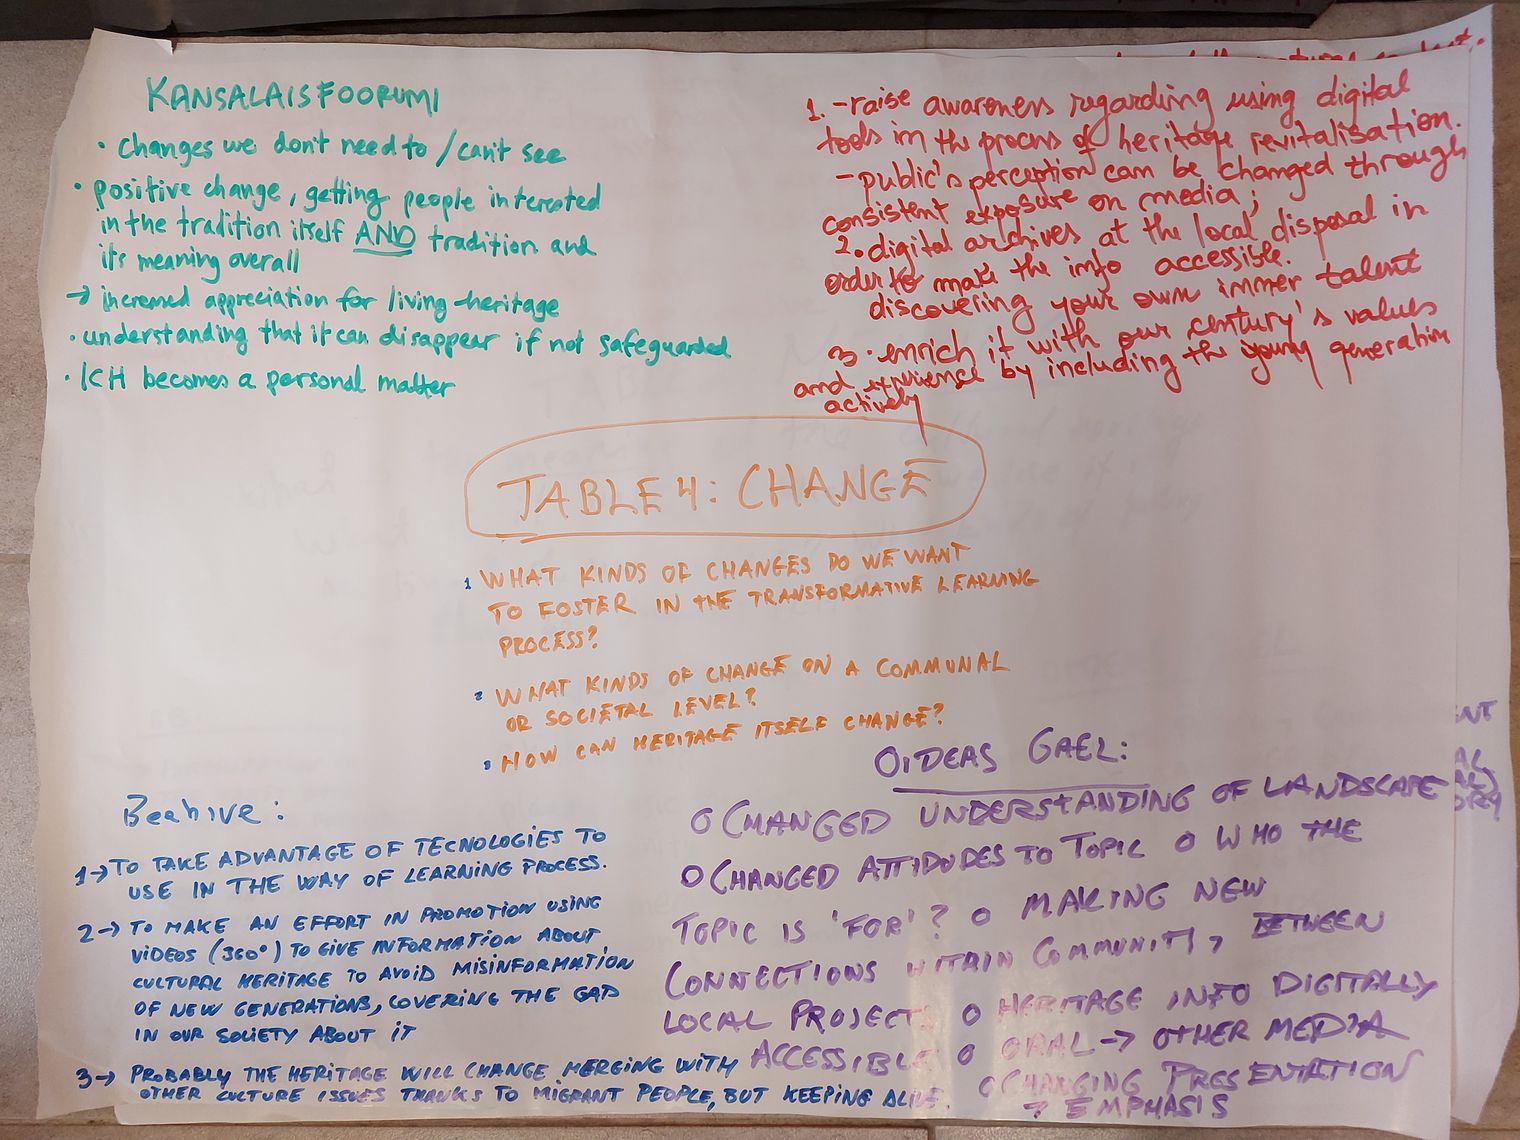 KANSALAISFOORUMI
• changes we don't need to / can't see
• positive change, getting people interested
in the tradition itself AND tradition and
its meaning overall
→ increased appreciation for living heritage
• understanding that it can disappear if not safeguarded
• ICH becomes a personal matter
1. - raise awareness regarding using digital
tools in the process of heritage revitalisation.
- public's perception can be changed through
consistent exposure on media;
2. digital archives at the local disposal in
order to make the info accessible.
discovering your own immer talent
3. enrich it with our century's values
and experience by including the young generation
actively
TABLE 4: CHANGE
1 WHAT KINDS OF CHANGES DO WE WANT
TO FOSTER IN THE TRANSFORMATIVE LEARNING
PROCESS?
2 WHAT KINDS OF CHANGE ON A COMMUNAL
OR SOCIETAL LEVEL?
3 HOW CAN HERITAGE ITSELF CHANGE?
Beehive:
1→ TO TAKE ADVANTAGE OF TECNOLOGIES TO
USE IN THE WAY OF LEARNING PROCESS.
2→ TO MAKE AN EFFORT IN PROMOTION USING
VIDEOS (360°) TO GIVE INFORMATION ABOUT
CULTURAL HERITAGE TO AVOID MISINFORMATION
OF NEW GENERATIONS, COVERING THE GAP
IN OUR SOCIETY ABOUT IT
3→ PROBABLY THE HERITAGE WILL CHANGE MERGING WITH
OTHER CULTURE ISSUES THANKS TO MIGRANT PEOPLE, BUT KEEPING ALIVE.
OIDEAS GAEL:
O CHANGED UNDERSTANDING OF LANDSCAPE
O CHANGED ATTIDUDES TO TOPIC O WHO THE
TOPIC IS 'FOR'? O MAKING NEW
CONNECTIONS WITHIN COMMUNITY, BETWEEN
LOCAL PROJECTS O HERITAGE INFO DIGITALLY
ACCESSIBLE O ORAL → OTHER MEDIA
O CHANGING PRESENTATION
→ EMPHASIS